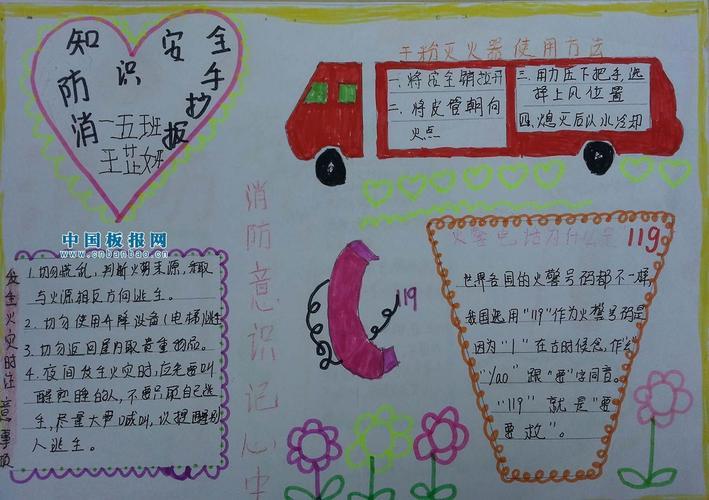 消防知识安全手抄报
一五班
王芷妍
中国板报网
www.cnbanbao.cn
干粉灭火器使用方法
一、将皮全销拉开
二、将皮管朝向
火点
三、用力压下把手,选
择上风位置
四、熄灭后以水冷却
消防意识记心中
119
发生火灾时注意事项
1.切勿慌乱,判断火势来源,采取
与火源相反方向逃生。
2.切勿使用升降设备(电梯)逃生
3.切勿返回屋内取贵重物品。
4.夜间发生火灾时,应先要叫
醒熟睡的人,不要只顾自己逃
生,尽量大声喊叫,以提醒别
人逃生。
火警电话为什么是119
世界各国的火警号码都不一样,
我国选用"119"作为火警号码是
因为"1"在古时候念,作
"Yao"跟"要"字同音。
"119"就是"要
要救"。